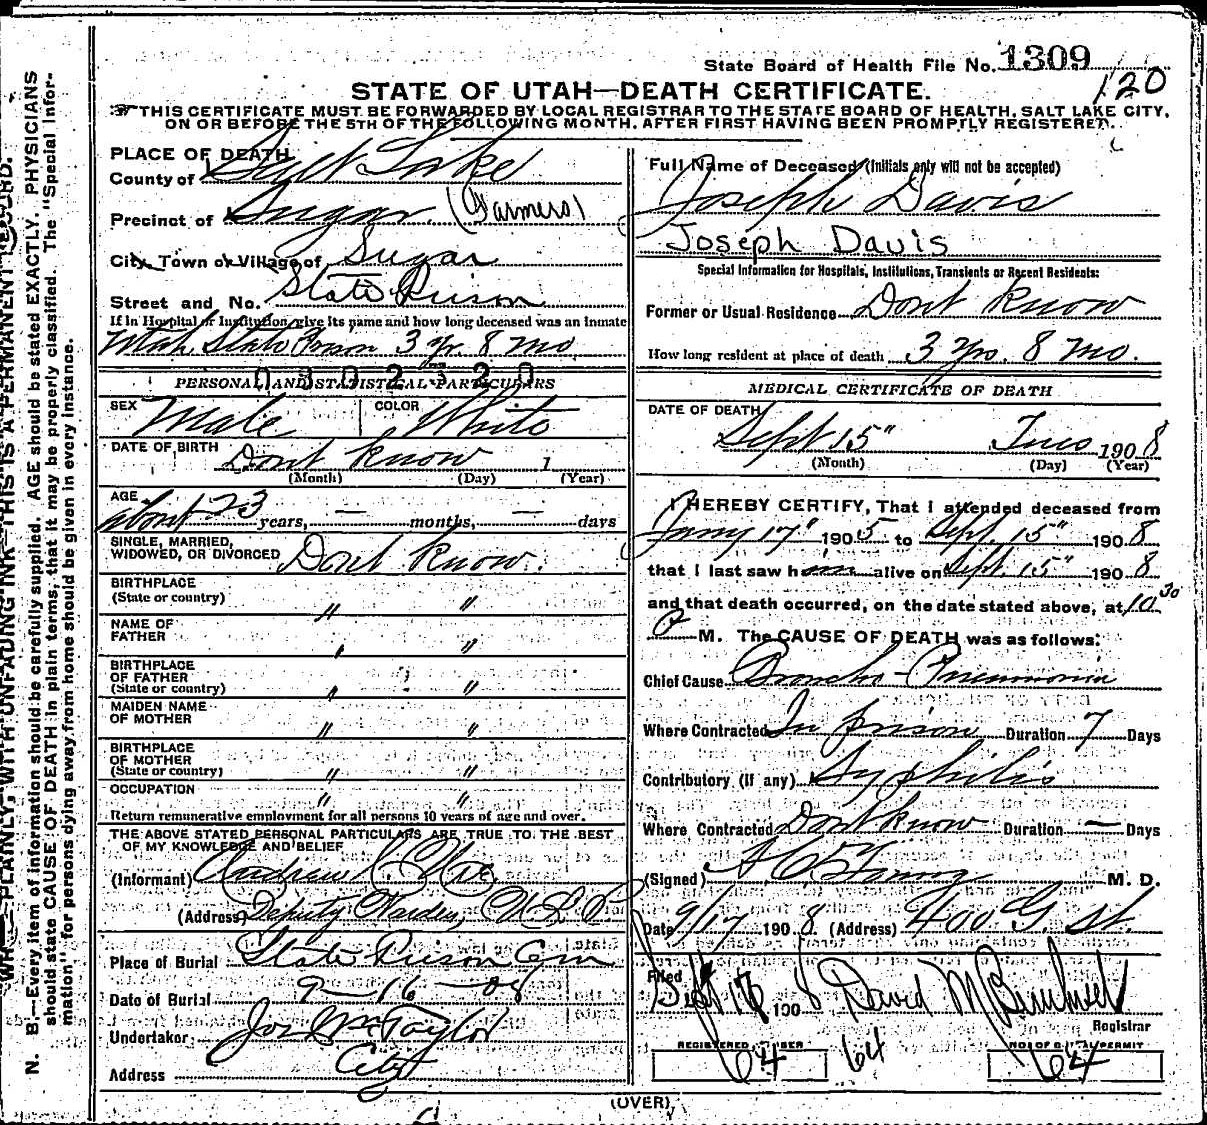 State Board of Health File No. 1309
120
STATE OF UTAH—DEATH CERTIFICATE.
THIS CERTIFICATE MUST BE FORWARDED BY LOCAL REGISTRAR TO THE STATE BOARD OF HEALTH, SALT LAKE CITY,
ON OR BEFORE THE 5TH OF THE FOLLOWING MONTH, AFTER FIRST HAVING BEEN PROMPTLY REGISTERED.
PLACE OF DEATH
County of Salt Lake
Precinct of Sugar (Farmers)
City, Town or Village of Sugar
Street and No. State Prison
If in Hospital or Institution, give its name and how long deceased was an inmate
Utah State Prison 3 Yr. 8 mo.
PERSONAL AND STATISTICAL PARTICULARS
SEX Male COLOR White
DATE OF BIRTH Dont know 1
(Month) (Day) (Year)
AGE about 23 years, — months, — days
SINGLE, MARRIED,
WIDOWED, OR DIVORCED Dont know.
BIRTHPLACE
(State or country) " "
NAME OF
FATHER " "
BIRTHPLACE
OF FATHER
(State or country) " "
MAIDEN NAME
OF MOTHER " "
BIRTHPLACE
OF MOTHER
(State or country) " "
OCCUPATION " "
Return remunerative employment for all persons 10 years of age and over.
THE ABOVE STATED PERSONAL PARTICULARS ARE TRUE TO THE BEST
OF MY KNOWLEDGE AND BELIEF
(Informant) Andrew
(Address) Deputy Warden, U.S.P.
Place of Burial State Prison Cem
Date of Burial 9-16-08
Undertaker Jos Wm Taylor
Address City
Full Name of Deceased (Initials only will not be accepted)
Joseph Davis
Joseph Davis
Special Information for Hospitals, Institutions, Transients or Recent Residents:
Former or Usual Residence Dont know
How long resident at place of death 3 yrs. 8 mo.
MEDICAL CERTIFICATE OF DEATH
DATE OF DEATH
Sept 15" Tues 1908
(Month) (Day) (Year)
I HEREBY CERTIFY, That I attended deceased from
Jany 17" 1905 to Sept. 15" 1908
that I last saw him alive on Sept. 15" 1908
and that death occurred, on the date stated above, at 10 30
P M. The CAUSE OF DEATH was as follows:
Chief Cause Broncho-Pneumonia
Where Contracted In prison Duration 7 Days
Contributory (if any) Syphilis
Where Contracted Dont know Duration — Days
(Signed) A C Young M. D.
Date 9/17 1908. (Address) 400 G. St.
Filed Sept 18 1908 David
Registrar
REGISTERED NUMBER 64 64 NO. OF BURIAL PERMIT 64
(OVER)
PLAINLY, WITH UNFADING INK—THIS IS A PERMANENT RECORD.
N. B.—Every item of information should be carefully supplied. AGE should be stated EXACTLY. PHYSICIANS
should state CAUSE OF DEATH in plain terms, that it may be properly classified. The "Special Infor-
mation" for persons dying away from home should be given in every instance.